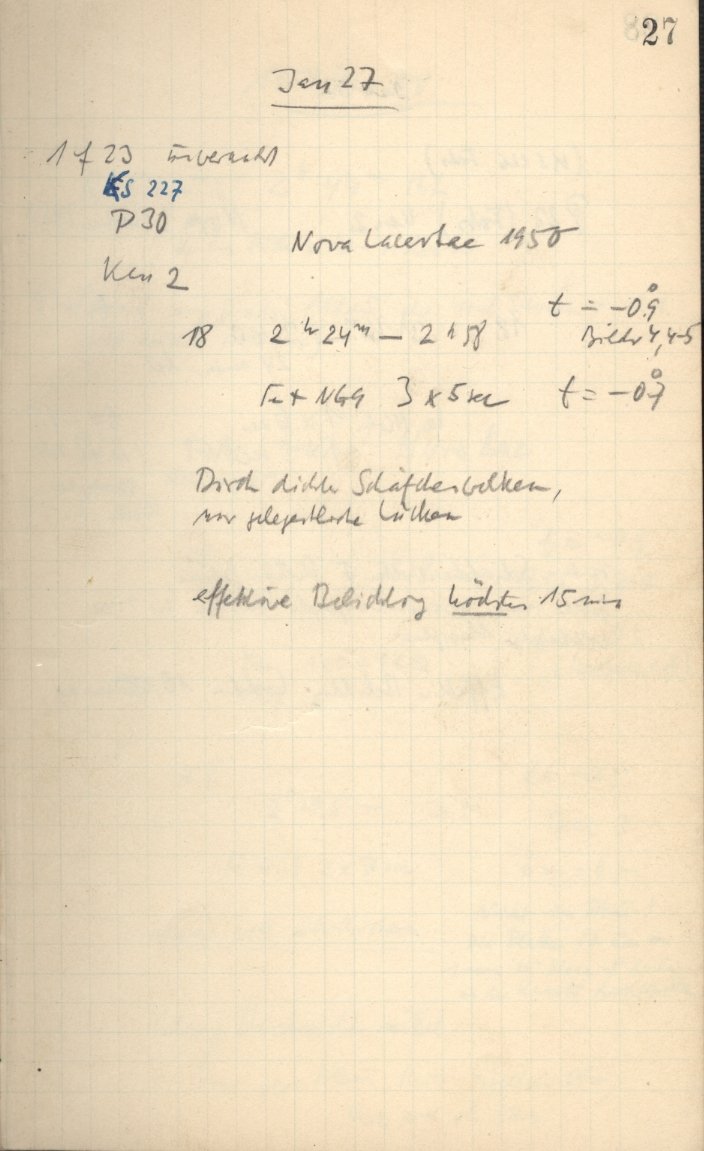 27
Jan 27
1 f 23
ES 227
P 30
Ken 2
Nova Lacertae 1950
t = -0°.9
18 2h 24m — 2h 58 Bilder 4, 4-5
Fe + NGG 3 x 5 sec t = -0°.7
Durch dichte Schäfchenwolken,
nur gelegentliche Lücken
effektive Belichtung höchstens 15 min